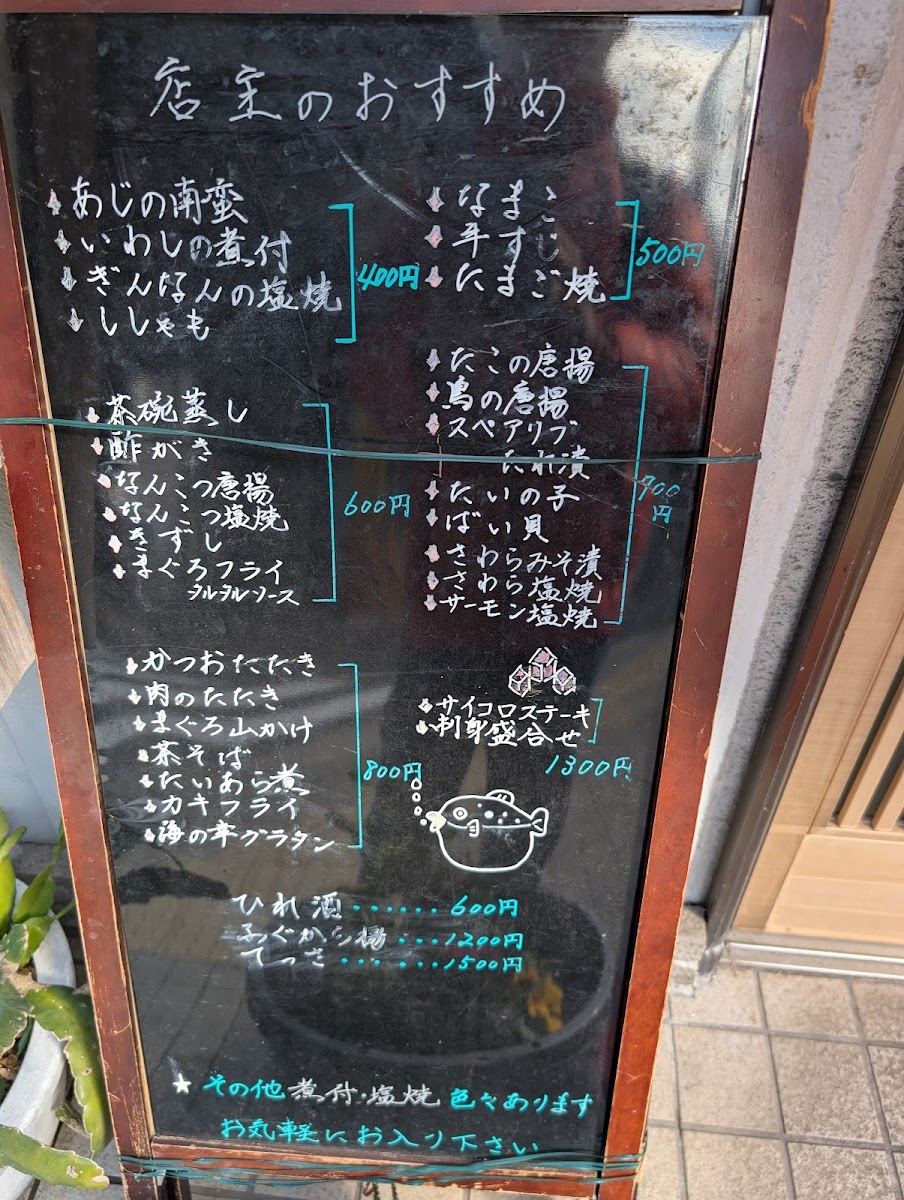 店主のおすすめ
あじの南蛮
いわしの煮付
ぎんなんの塩焼
ししゃも
400円
なまこ
牛すじ
たまご焼
500円
茶碗蒸し
酢がき
なんこつ唐揚
なんこつ塩焼
きずし
まぐろフライ
タルタルソース
600円
たこの唐揚
鳥の唐揚
スペアリブ
たれ漬
たいの子
ばい貝
さわらみそ漬
さわら塩焼
サーモン塩焼
900
円
かつおたたき
肉のたたき
まぐろ山かけ
茶そば
たいあら煮
カキフライ
海の幸グラタン
800円
サイコロステーキ
刺身盛合せ
1300円
ひれ酒・・・・・・600円
ふぐから揚・・・1200円
てっさ・・・・・・1500円
★その他煮付・塩焼 色々あります
お気軽にお入り下さい